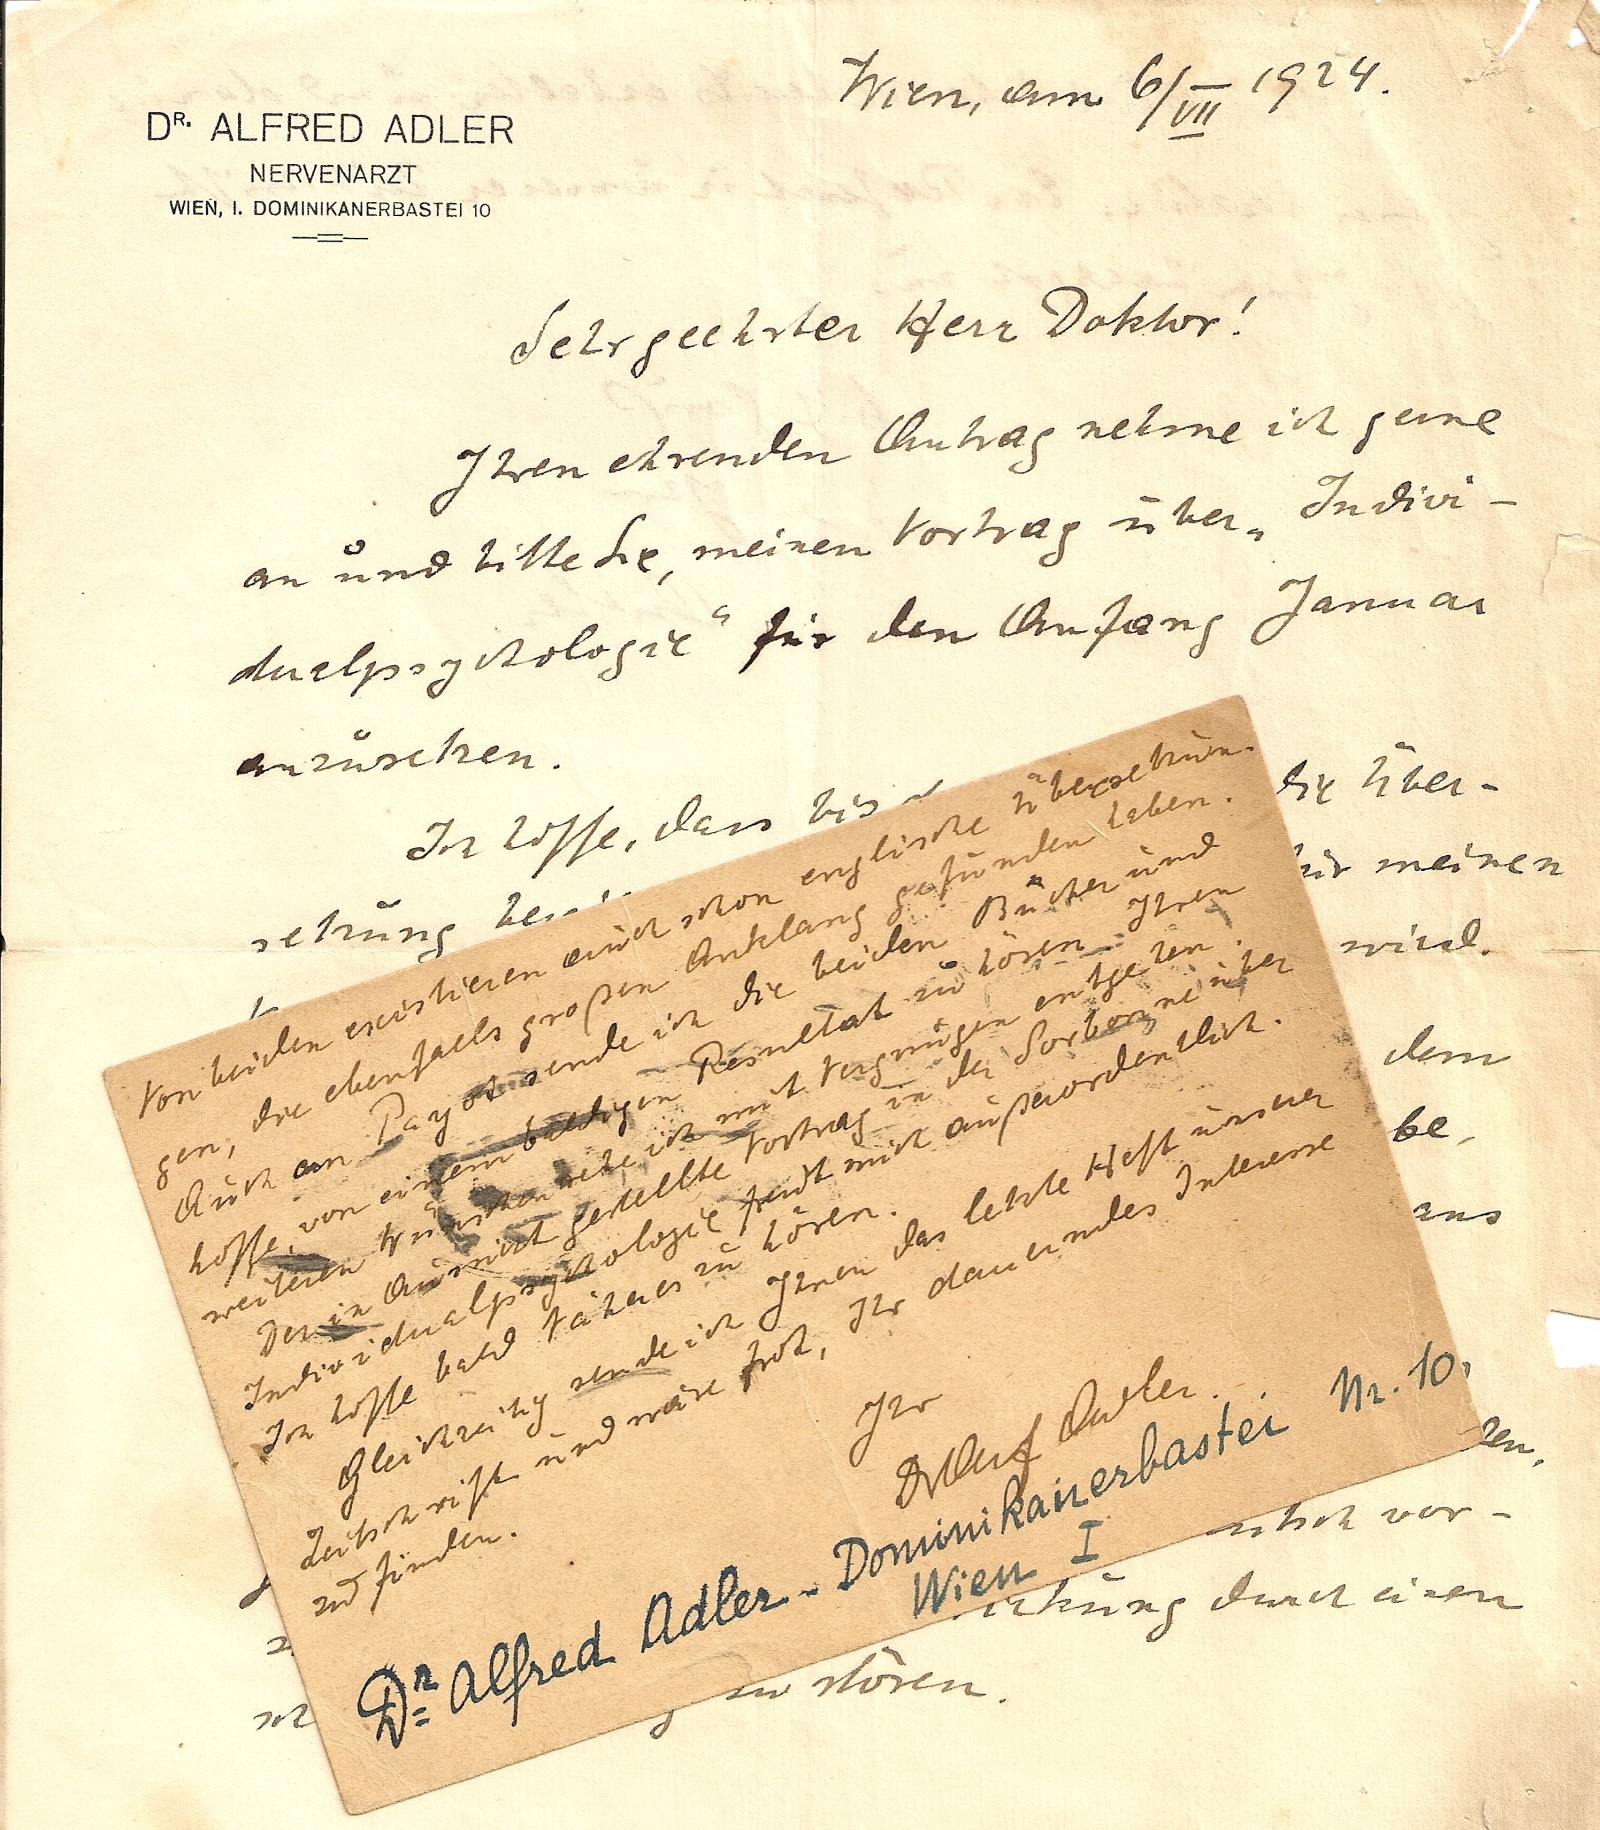 Wien, am 6/VII 1924.
DR. ALFRED ADLER
NERVENARZT
WIEN, I. DOMINIKANERBASTEI 10
Sehr geehrter Herr Doktor!
Ihren ehrenden Antrag nehme ich gerne
an und bitte Sie, meinen Vortrag über „Indivi-
dualpsychologie“ für den Anfang Januar
anzusetzen.
Ich hoffe, dass bis die Über-
setzung für meinen
wird.
dem
be,
ans
vor-
durch einen
zu stören.
Von beiden existieren auch schon englische Übersetzun-
gen, die ebenfalls großen Anklang gefunden haben.
Auch an Payot sende ich die beiden Bücher und
hoffe, von einem baldigen Resultat zu hören. Ihren
weiteren Wünschen sehe ich mit Vergnügen entgegen.
Der in Aussicht gestellte Vortrag in der Sorbonne über
Individualpsychologie freut mich außerordentlich.
Ich hoffe bald Näheres zu hören.
Gleichzeitig sende ich Ihnen das letzte Heft unserer
Zeitschrift und wäre froh, Ihr dauerndes Interesse
zu finden.
Ihr
Dr Alf Adler.
Dr. Alfred Adler - Dominikanerbastei Nr. 10.
Wien I